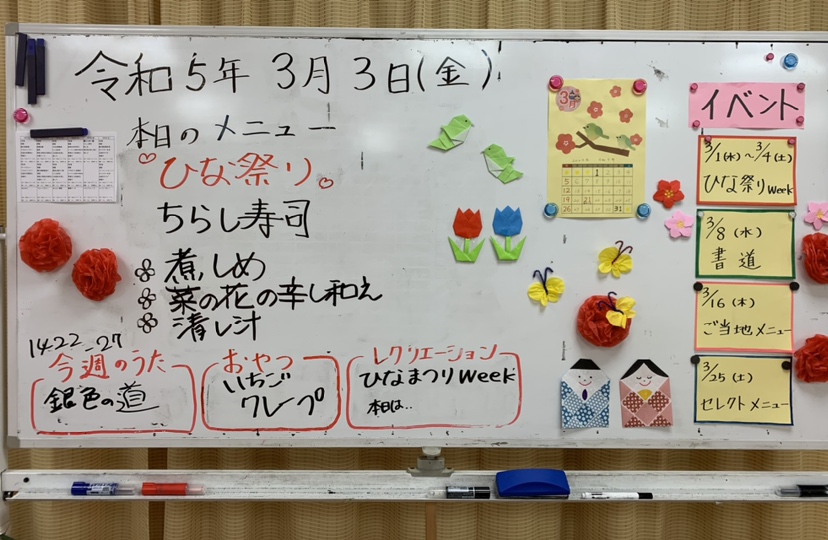 令和5年 3月 3日(金)
本日のメニュー
ひな祭り
ちらし寿司
煮しめ
菜の花の辛し和え
清し汁
14.22-27
今週のうた
銀色の道
おやつ
いちご
クレープ
レクリエーション
ひなまつりWeek
本日は…
3月
1
5
12
19
21
26
31
イベント
3/1(水)~3/4(土)
ひな祭りWeek
3/8(水)
書道
3/16(木)
ご当地メニュー
3/25(土)
セレクトメニュー